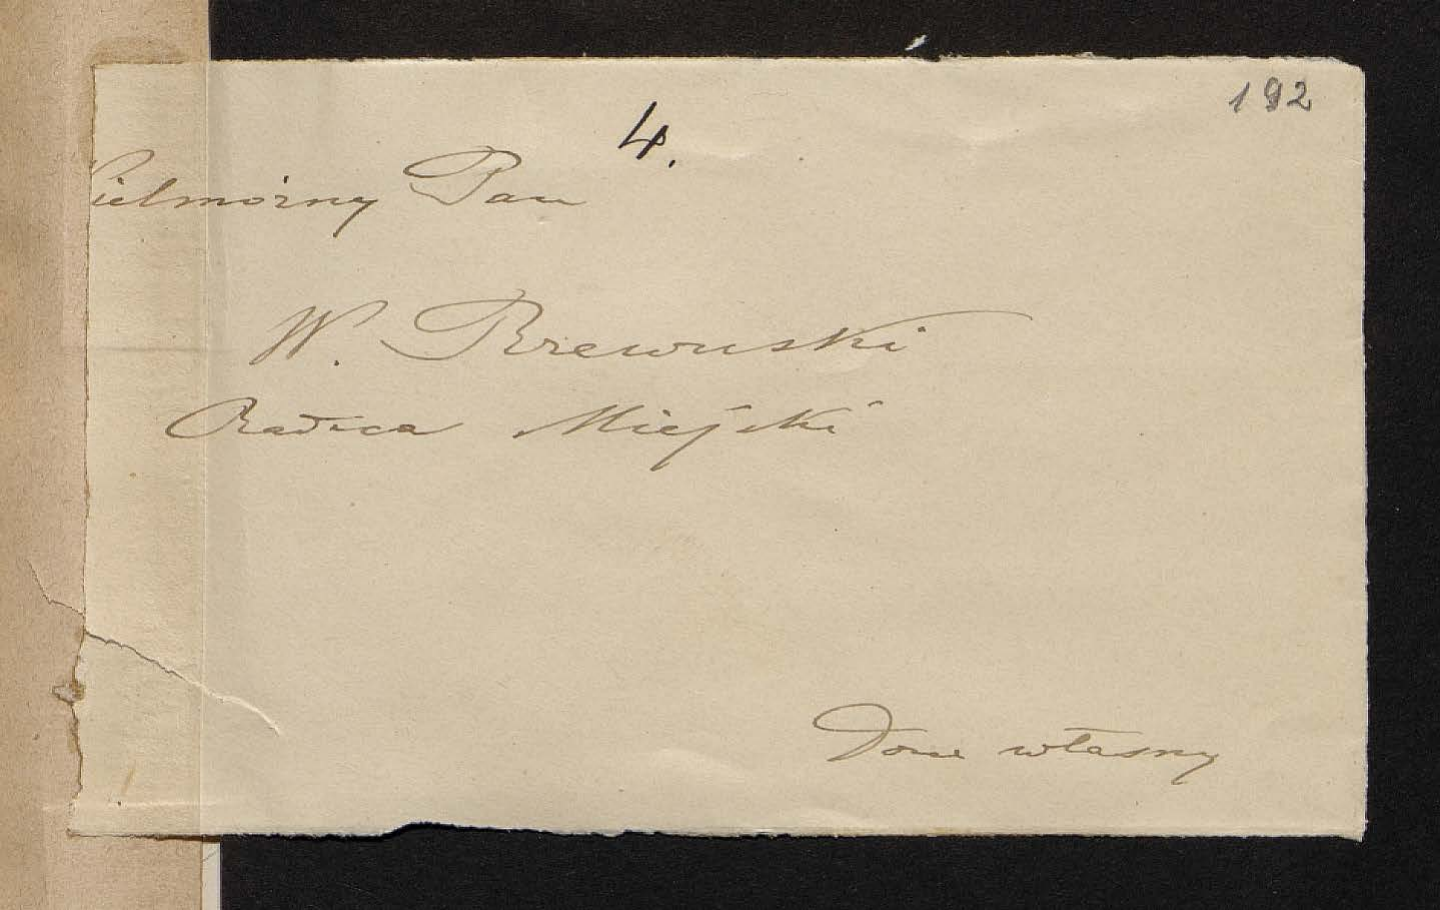 192
4.
Wielmożny Pan
W. Rzewuski
Radzca Miejski
Dom własny